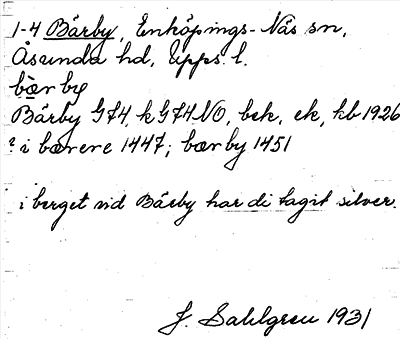 1-4 Bärby, Enköpings-Näs sn,
Åsunda hd, Upps. l.
bær by
Bärby GJ4, kGJ4NO, bek, ek, kb 1926
? i bærere 1447; bærby 1451
i berget vid Bärby har di tagit silver.
J. Sahlgren 1931